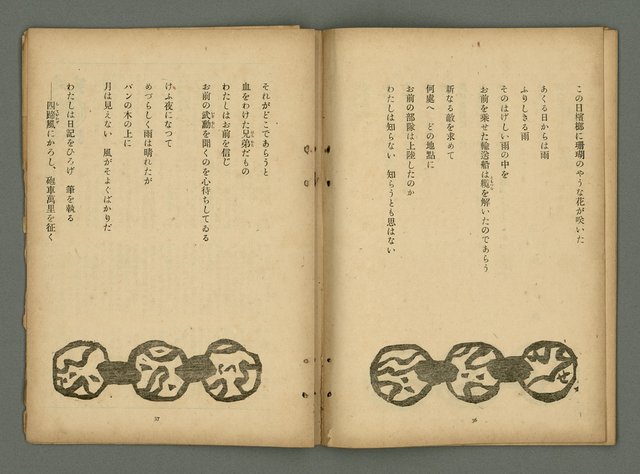 この日檳榔に珊瑚のやうな花が咲いた
あくる日からは雨
ふりしきる雨
そのはげしい雨の中を
お前を乘せた輸送船は纜を解いたのであらう
新なる敵を求めて
何處へ どの地點に
お前の部隊は上陸したのか
わたしは知らない 知らうとも思はない
36
それがどこであらうと
血をわけた兄弟だもの
わたしはお前を信じ
お前の武勳を聞くのを心待ちしてゐる
けふ夜になつて
めづらしく雨は晴れたが
パンの木の上に
月は見えない 風がそよぐばかりだ
わたしは日記をひろげ 筆を執る
──四蹄風にかろし、砲車萬里を征く
37